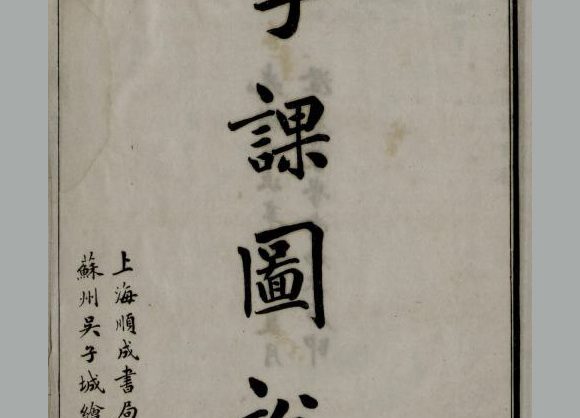 課圖
上海順成書局
蘇州吳子城繪